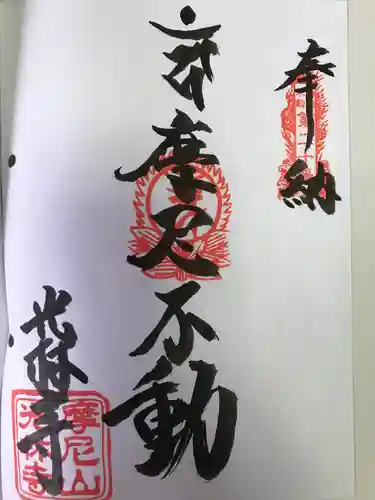 奉納
摩尼不動
光林寺
摩尼山
光林寺